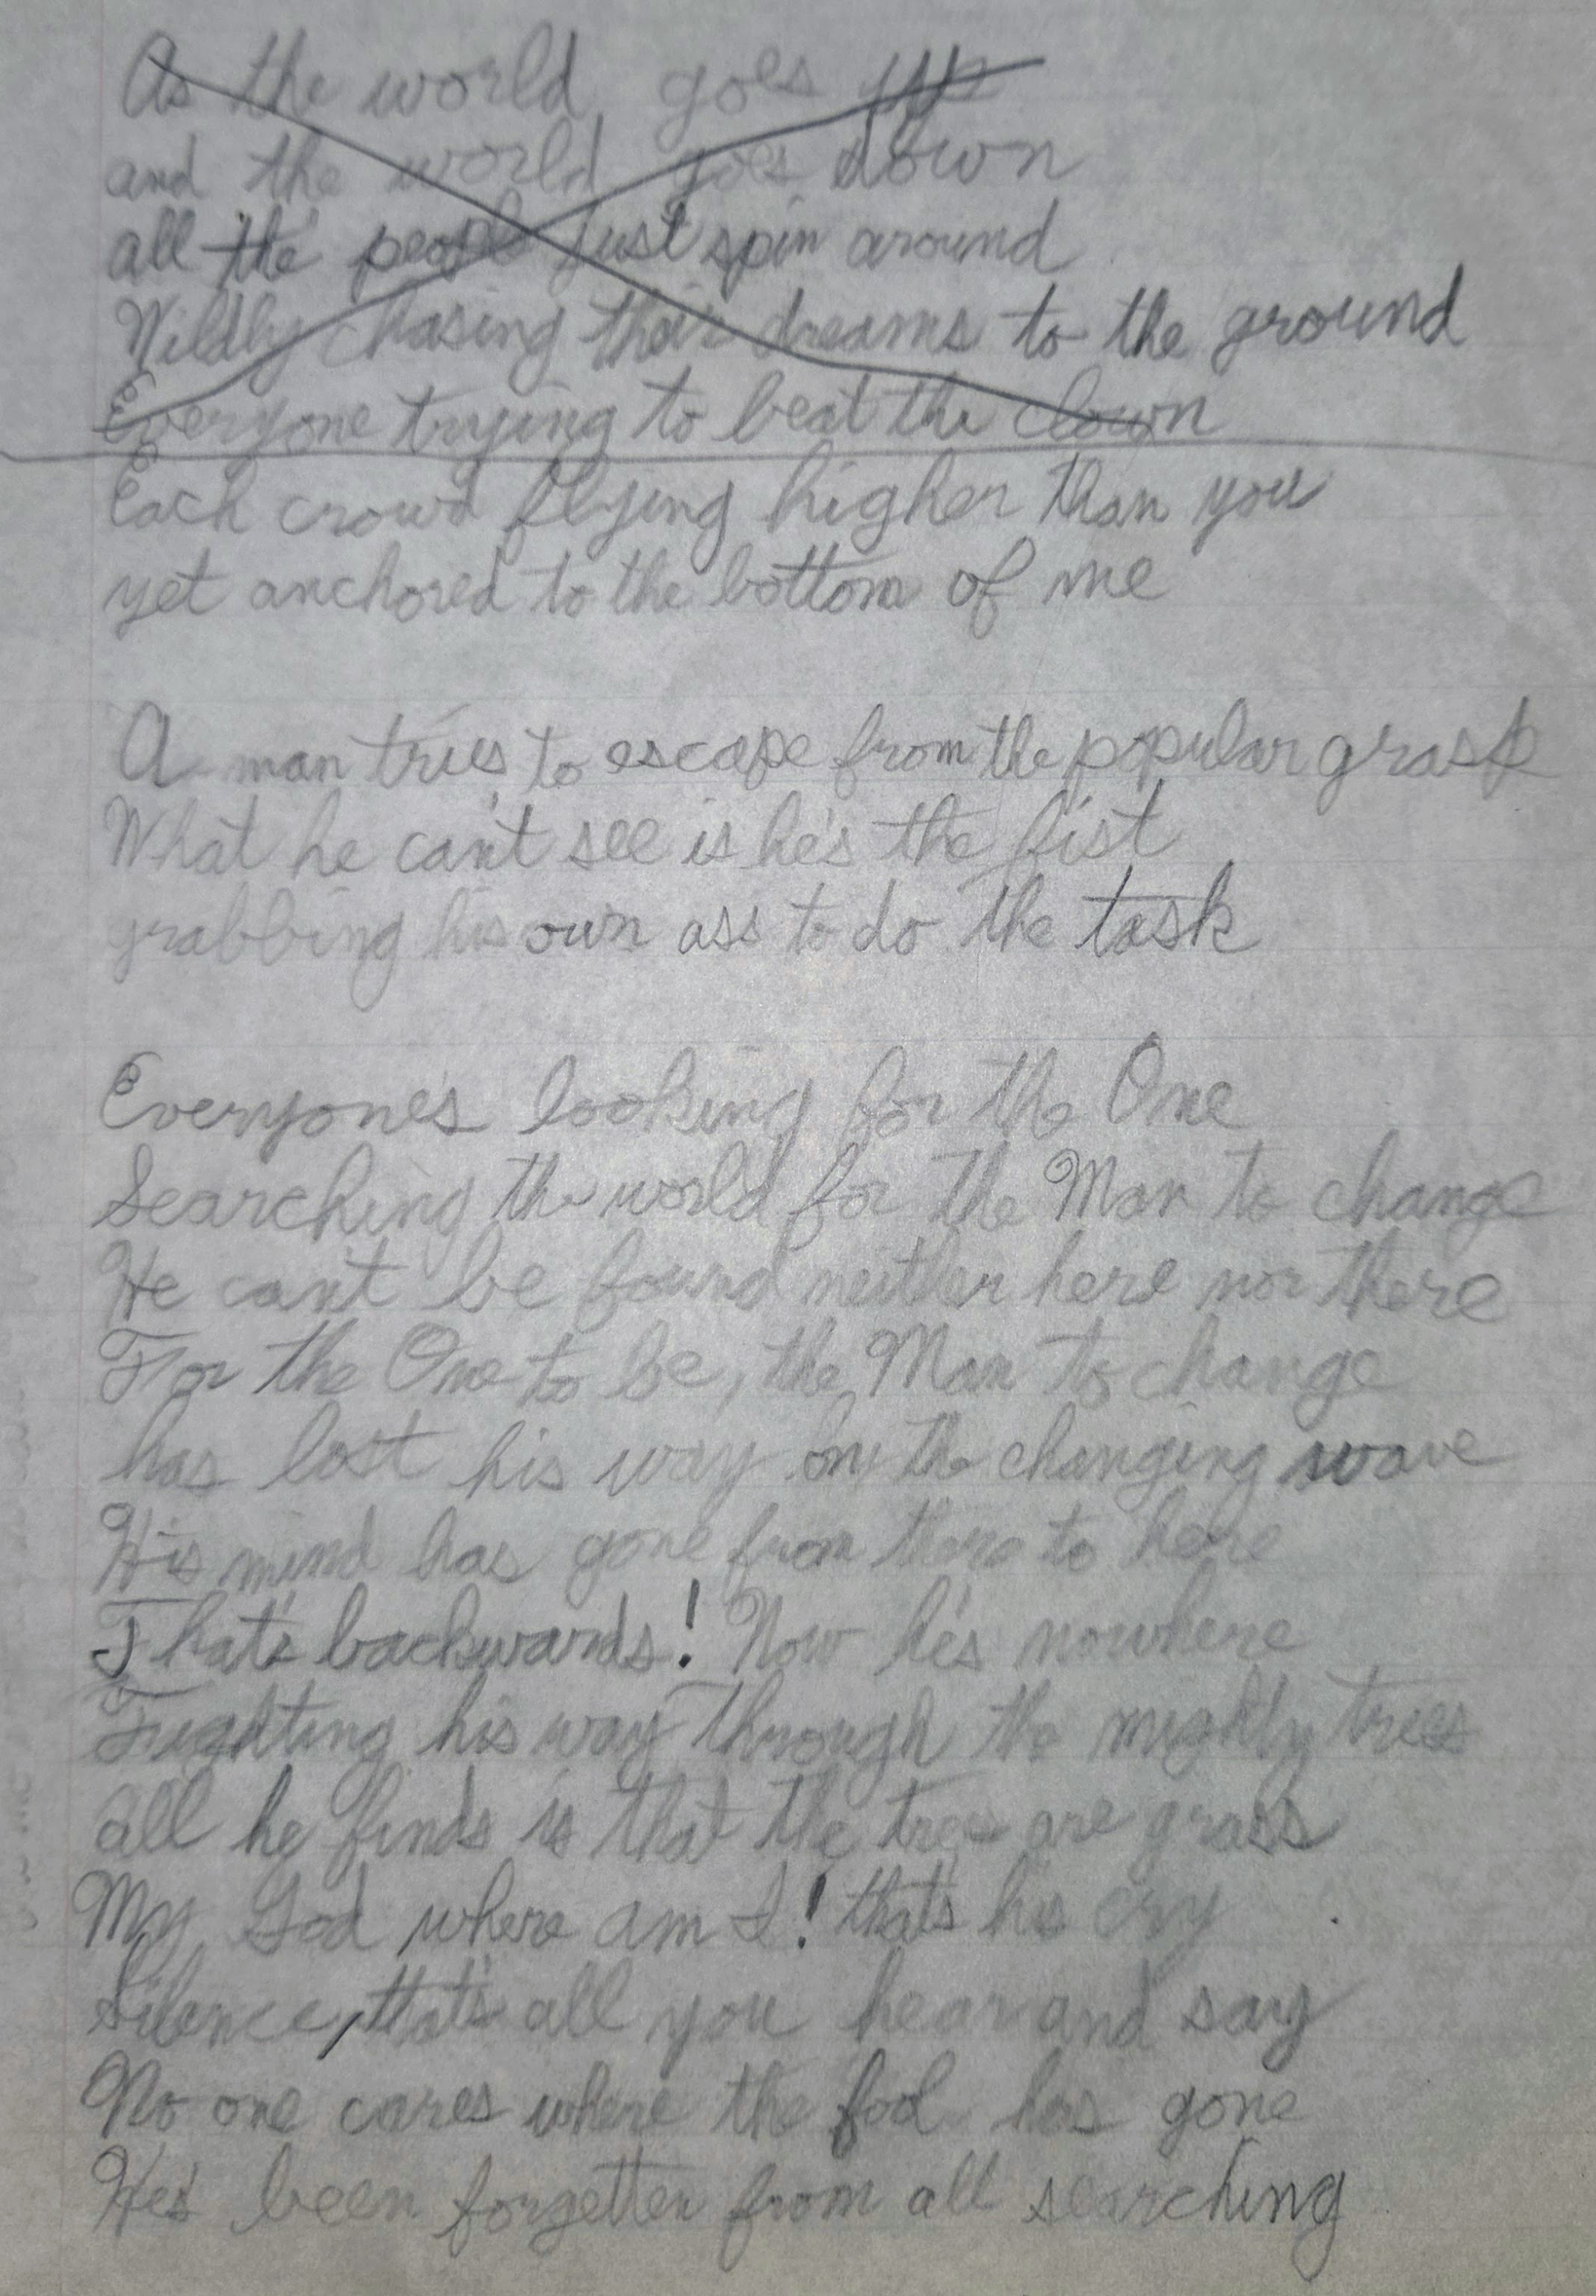 As the world goes up
and the world goes down
all the people just spin around
Wildly chasing their dreams to the ground
Everyone trying to beat the clown
Each crowd flying higher than you
yet anchored to the bottom of me
A man tries to escape from the popular grasp
What he can't see is he's the fist
grabbing his own ass to do the task
Everyone's looking for the One
Searching the world for the Man to change
He can't be found neither here nor there
For the One to be, the Man to change
has lost his way on the changing wave
His mind has gone from there to here
That's backwards! Now he's nowhere
Fighting his way through the mighty trees
all he finds is that the trees are grass
My God where am I! that's his cry
Silence, that's all you hear and say
No one cares where the fool has gone
He's been forgotten from all searching